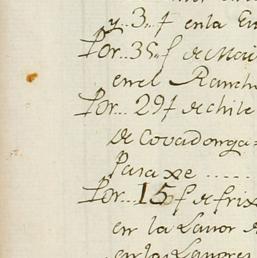 y..3..f enla
Por..35..f de Mai
en el Ranch
Por...29f de chile
de Covadonga=
Paraxe .....
Por..15f de frix
en la Lavor
en las Lavores